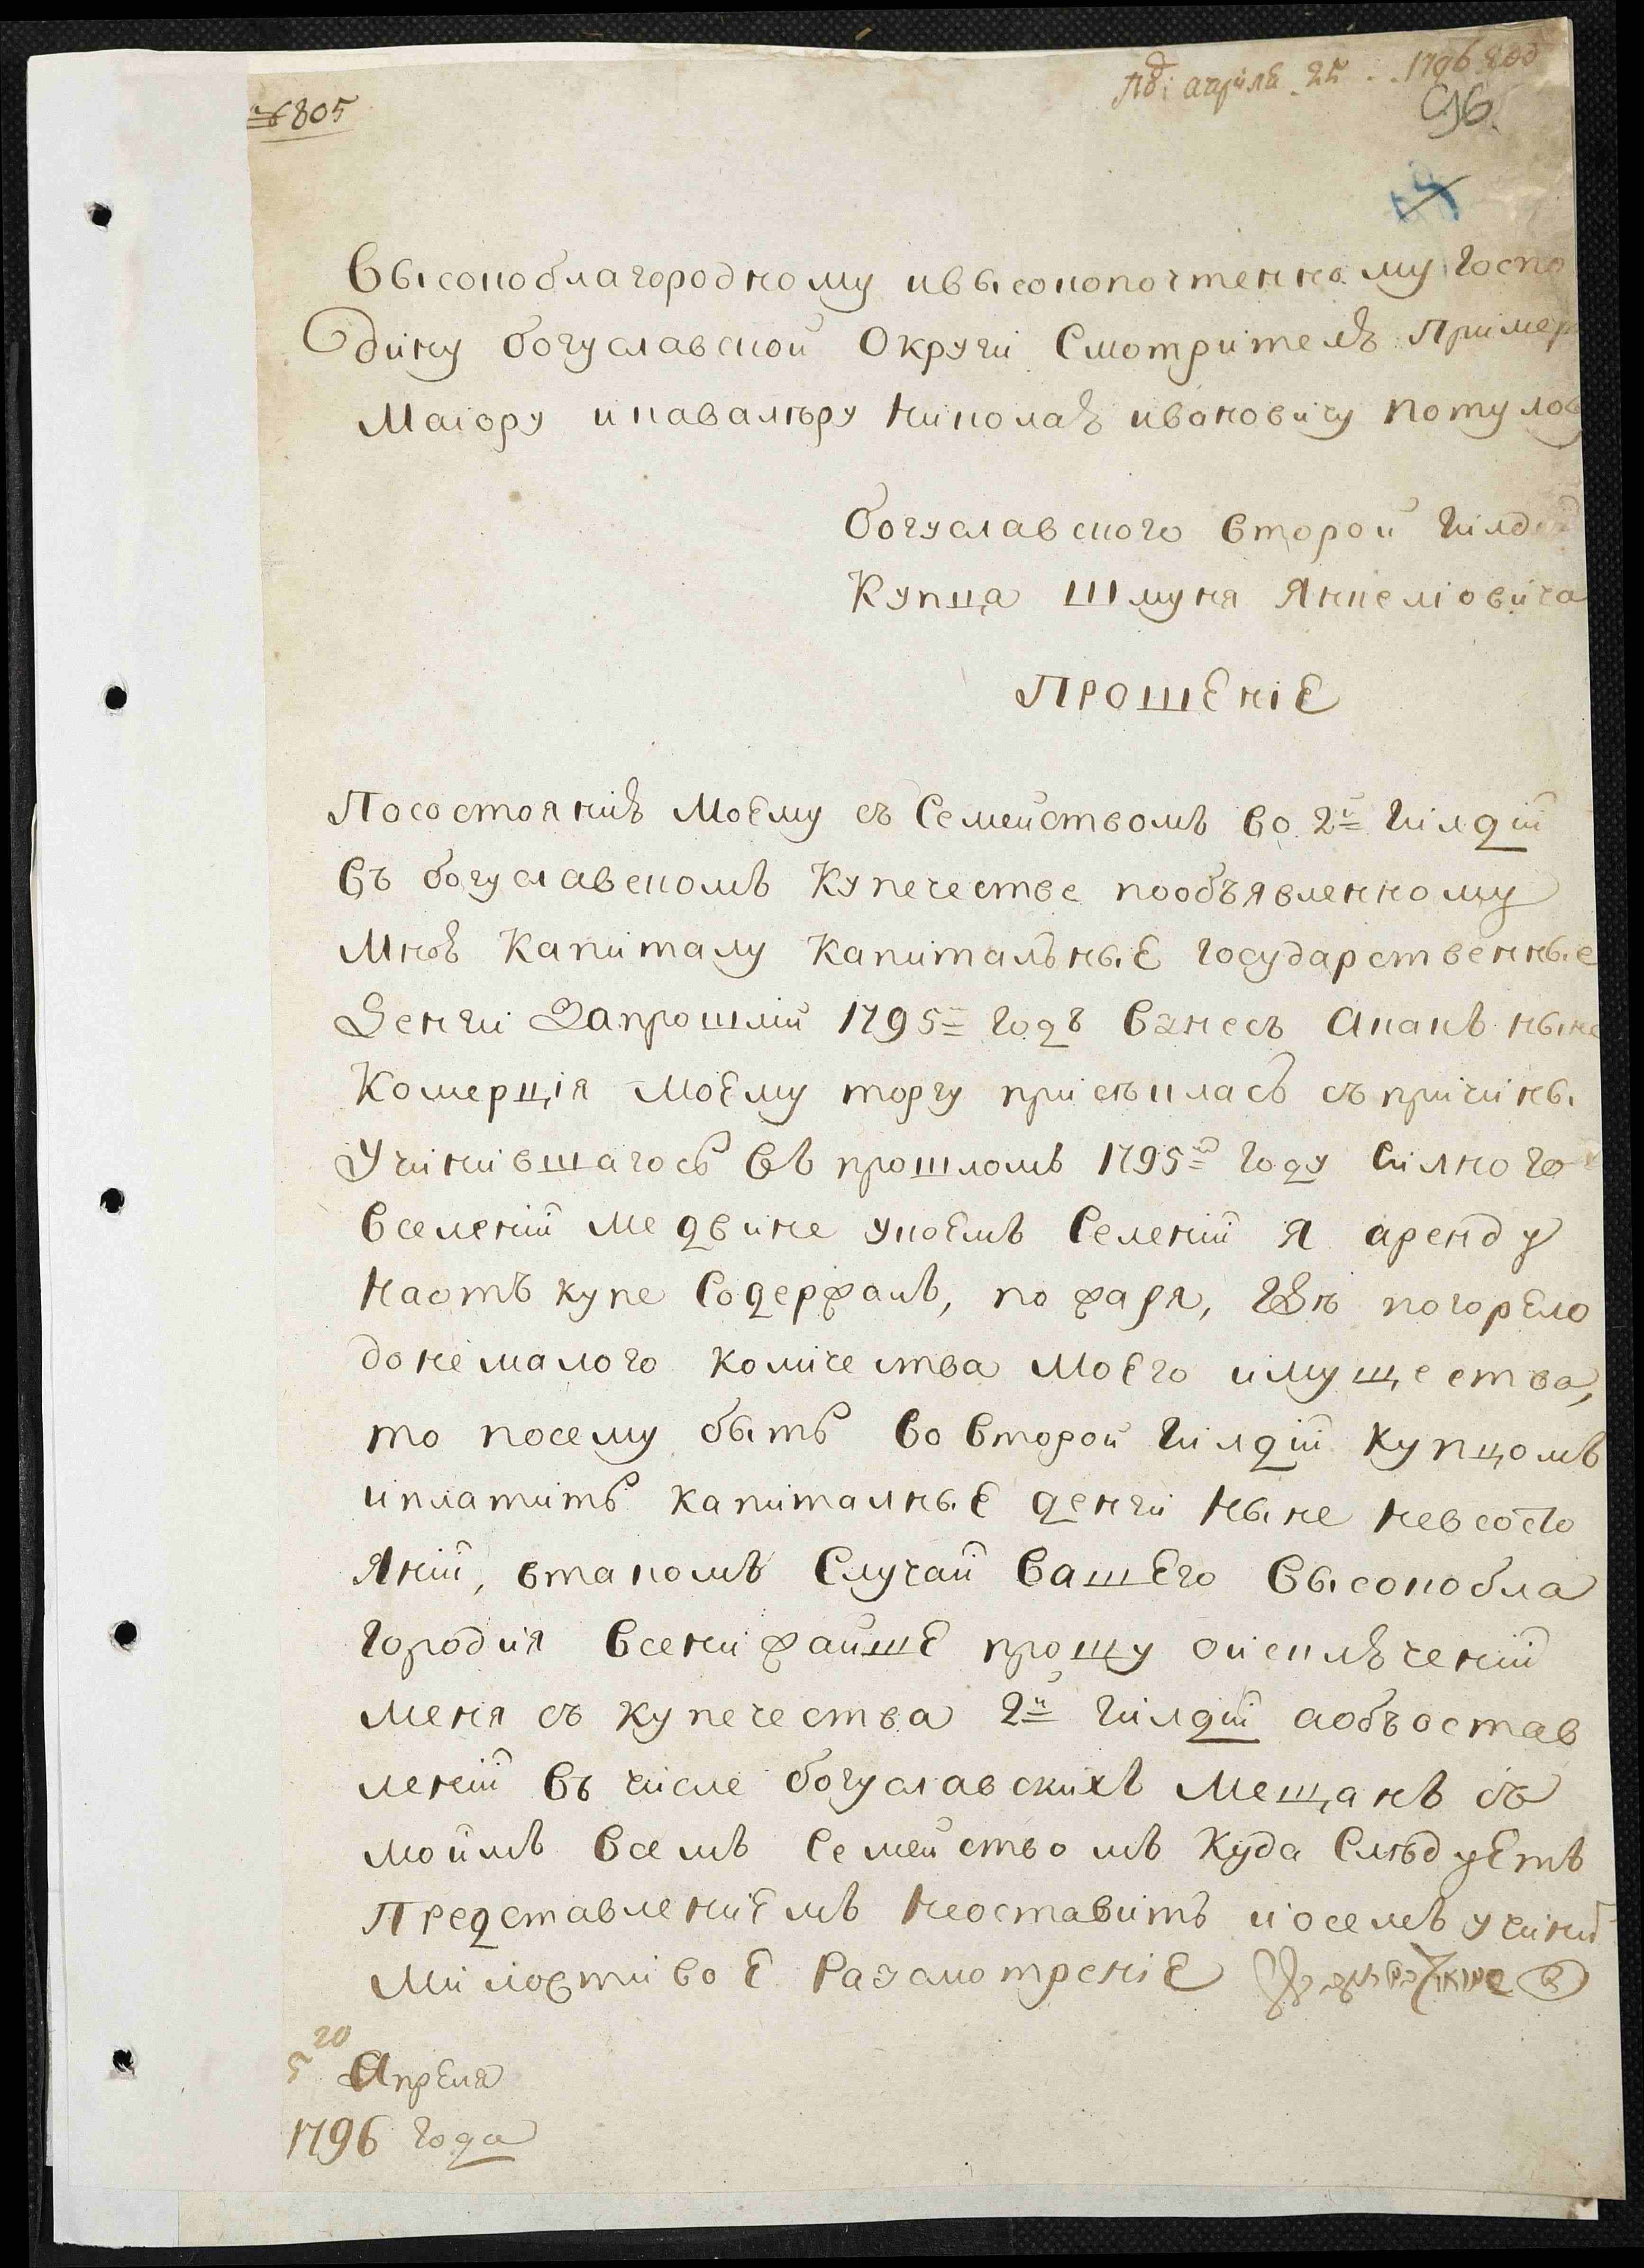 № 805
Апреля 25 1796 год
96.
Высокоблагородному ивысокопочтенному Госпо
дину богуславской Округи Смотрителю Пример
Маіору икавалѣру Николаю ивановичу Потулов
богуславского второй Гилдіи
Купца Шмуня Янкеліовича
ПРОШЕНІЕ
Посостоянию Моему съ Семействомъ во 2й Гилдіи
Въ богуславскомъ Купечестве пообъявленному
Мною Капиталу Капиталные Государственные
Денги Запрошлій 1795й Годъ Взнесъ Акакъ ныне
Комерція Моему торгу присѣклась съпричины
Учинившагось Въ прошломъ 1795м Году Силного
Вселеніи Медвине укоемъ Селеніи Я аренду
Наоткупе Содержалъ, пожара, Гдѣ погорело
донемалого Количества Моего имущества,
то посему быть Во Второй Гилдіи Купцомъ
иплатить Капиталные денги Ныне Невсосто
Яніи, втакомъ Случаи Вашего Высокобла
Городия Всенижайше прошу оисключеніи
Меня съ Купечества 2й Гилдіи аобъостав
леніи Въ числе богуславскихъ Мещанъ съ
моимъ Всемъ Семействомъ Куда Слѣдуетъ
Представлениемъ Неоставить иосемъ учинить
Милостивое Разсмотреніе
20
Апреля
1796 Года